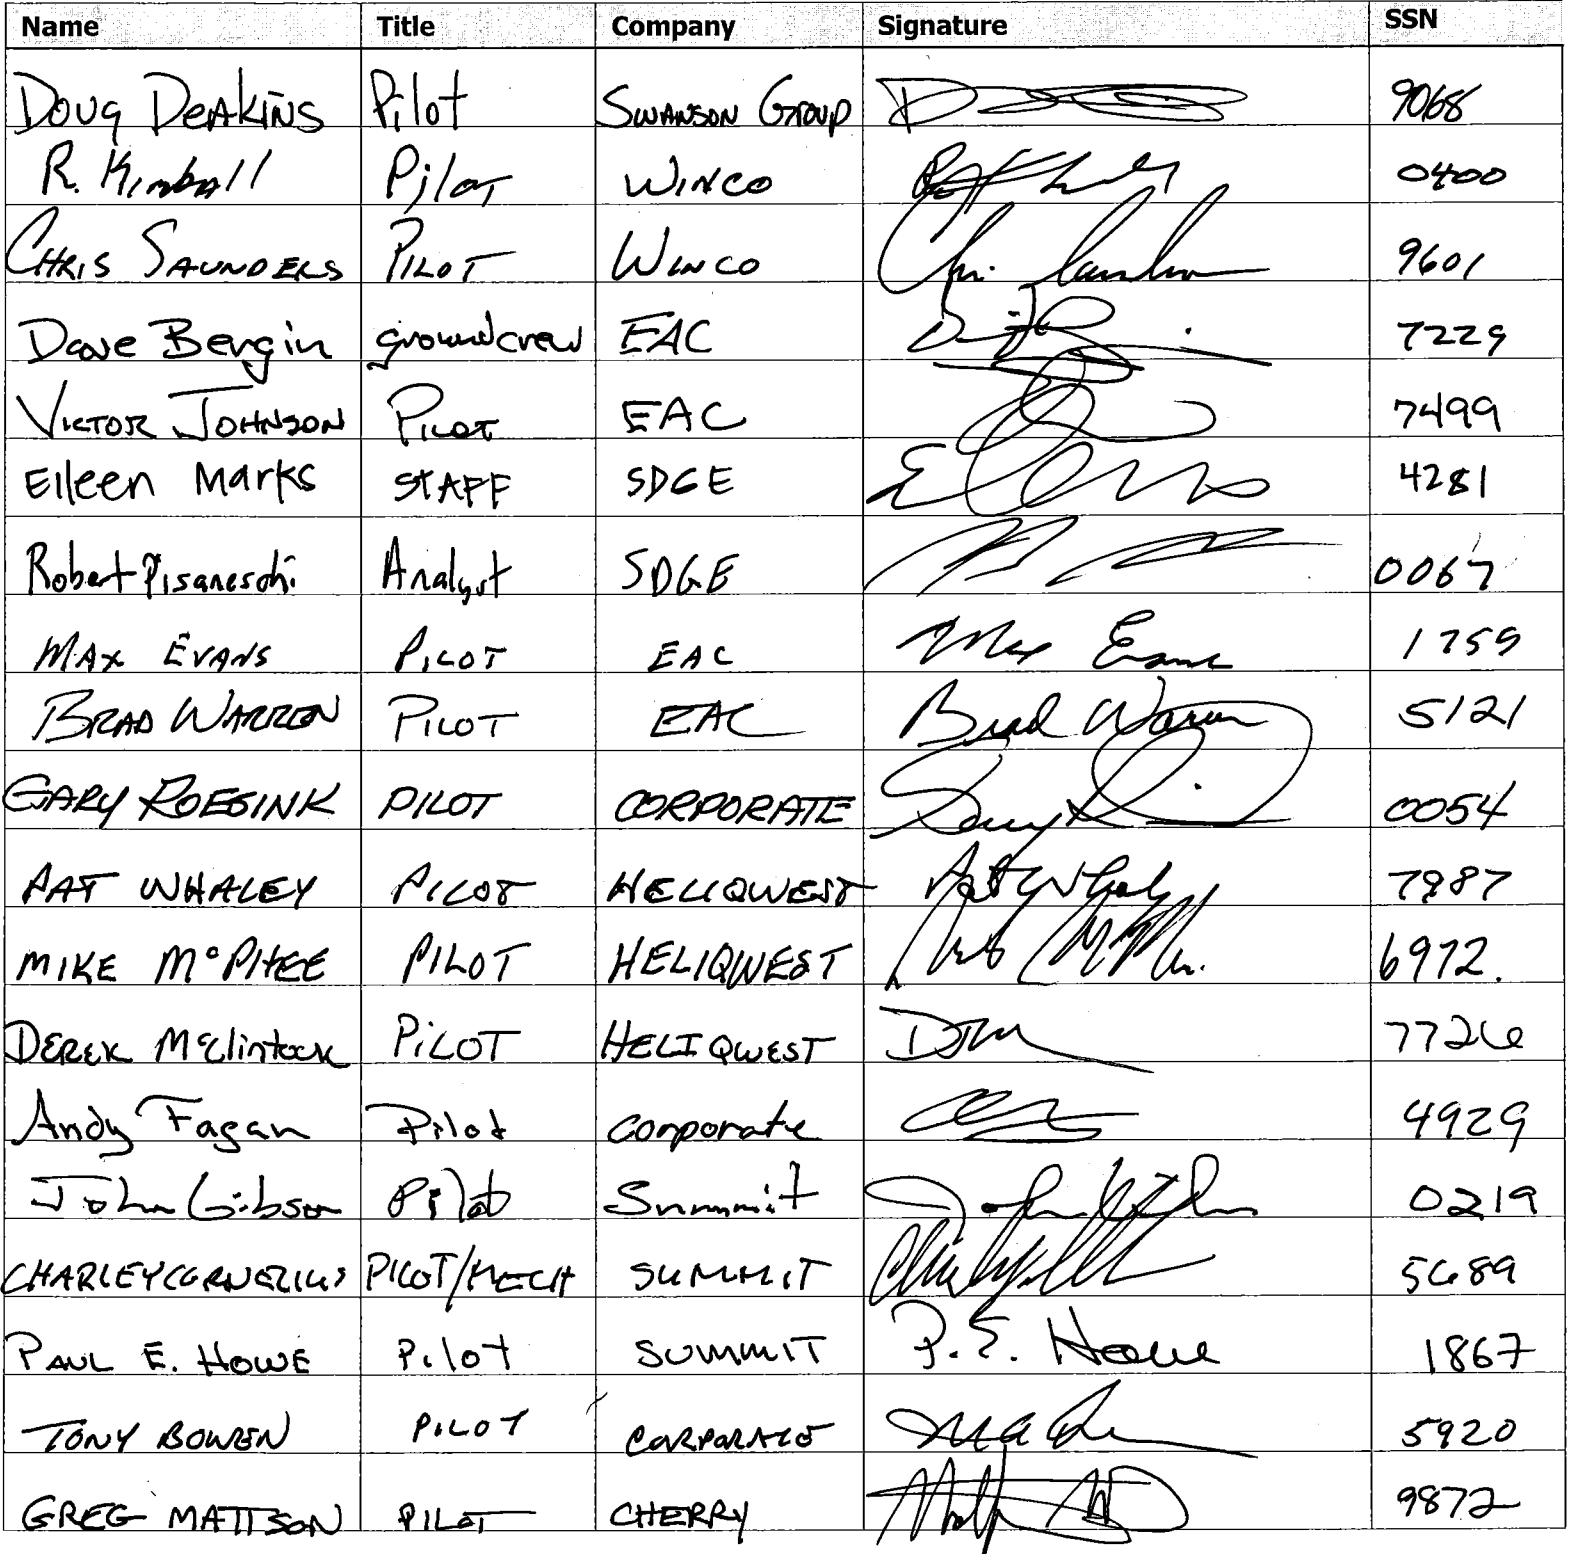 Name Title Company Signature SSN
Doug Deakins Pilot Swanson Group 9068
R. Kimball Pilot Winco 0400
Chris Saunders Pilot Winco 9601
Dave Bergin groundcrew EAC 7229
Victor Johnson Pilot EAC 7499
Eileen Marks Staff SDGE 4281
Robert Pisaneschi Analyst SDGE 0067
Max Evans Pilot EAC Max Evans 1759
Brad Warren Pilot EAC Brad Warren 5121
GARY ROESINK PILOT CORPORATE 0054
PAT WHALEY PILOT HELIQWEST Pat Whaley 7987
MIKE McPHEE PILOT HELIQWEST 6972.
DEREK McClintock PILOT HELIQWEST 7726
Andy Fagan Pilot Corporate 4929
John Gibson Pilot Summit 0219
CHARLEY CORNELIUS PILOT/MECH SUMMIT 5689
PAUL E. HOWE Pilot SUMMIT P.E. Howe 1867
TONY BOWEN PILOT CORPORATE 5920
GREG MATTSON PILOT CHERRY 9872